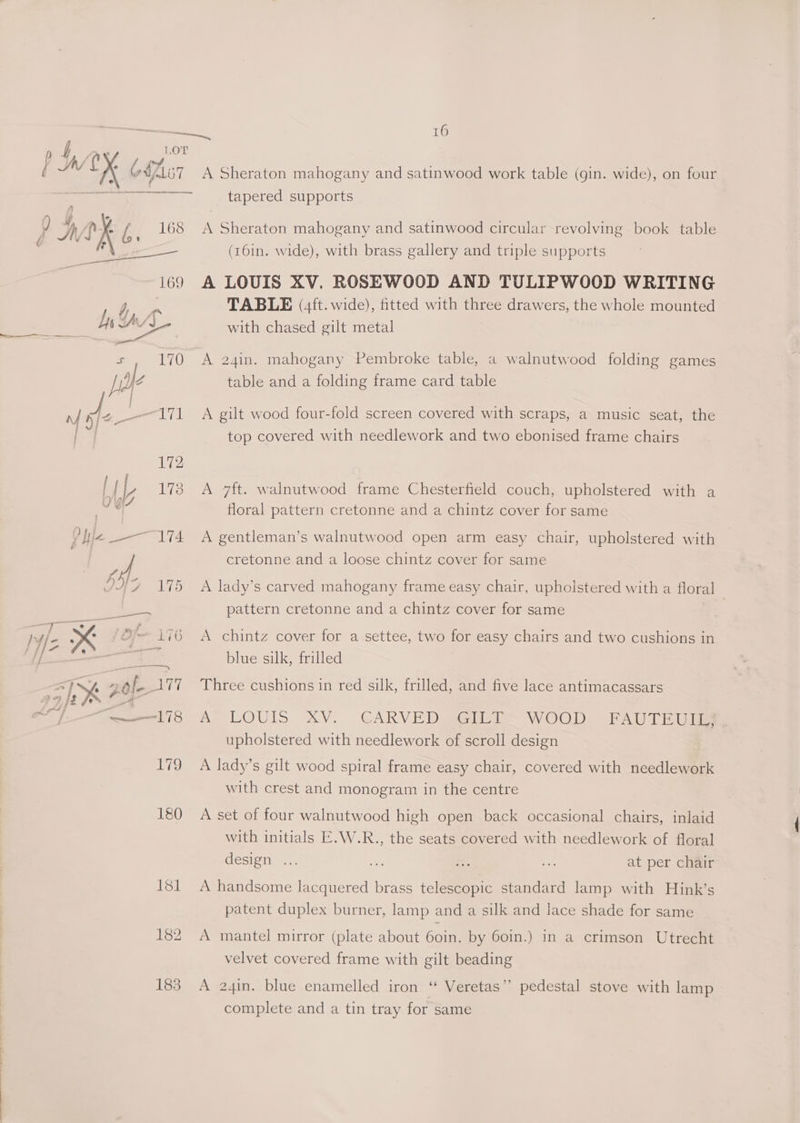 16
LOT
167 A Sheraton mahogany and satinwood work table (9in. wide), on four
tapered supports
168 A Sheraton mahogany and satinwood circular revolving book table
(16in. wide), with brass gallery and triple supports
169 A LOUIS XV. ROSEWOOD AND TULIPWOOD WRITING
TABLE (4ft. wide), fitted with three drawers, the whole mounted
with chased gilt metal
170 A 24in. mahogany Pembroke table, a walnutwood folding games
table and a folding frame card table
171 A gilt wood four-fold screen covered with scraps, a music seat, the
top covered with needlework and two ebonised frame chairs
172
173 A 7ft. walnutwood frame Chesterfield couch, upholstered with a
floral pattern cretonne and a chintz cover for same
174 A gentleman's walnutwood open arm easy chair, upholstered with
cretonne and a loose chintz cover for same
175 A lady's carved mahogany frame easy chair, upholstered with a floral
pattern cretonne and a chintz cover for same
176 A chintz cover for a settee, two for easy chairs and two cushions in
blue silk, frilled
177 Three cushions in red silk, frilled, and five lace antimacassars
178 A LOUIS XV. CARVED GILT WOOD FAUTEUIL,
upholstered with needlework of scroll design
179 A lady's gilt wood spiral frame easy chair, covered with needlework
with crest and monogram in the centre
180 A set of four walnutwood high open back occasional chairs, inlaid
with initials E.W.R., the seats covered with needlework of floral
design ... ... ... ... at per chair
181 A handsome lacquered brass telescopic standard lamp with Hink's
patent duplex burner, lamp and a silk and lace shade for same
182 A mantel mirror (plate about 60in. by 60in.) in a crimson Utrecht
velvet covered frame with gilt beading
183 A 24in. blue enamelled iron "Veretas" pedestal stove with lamp
complete and a tin tray for same